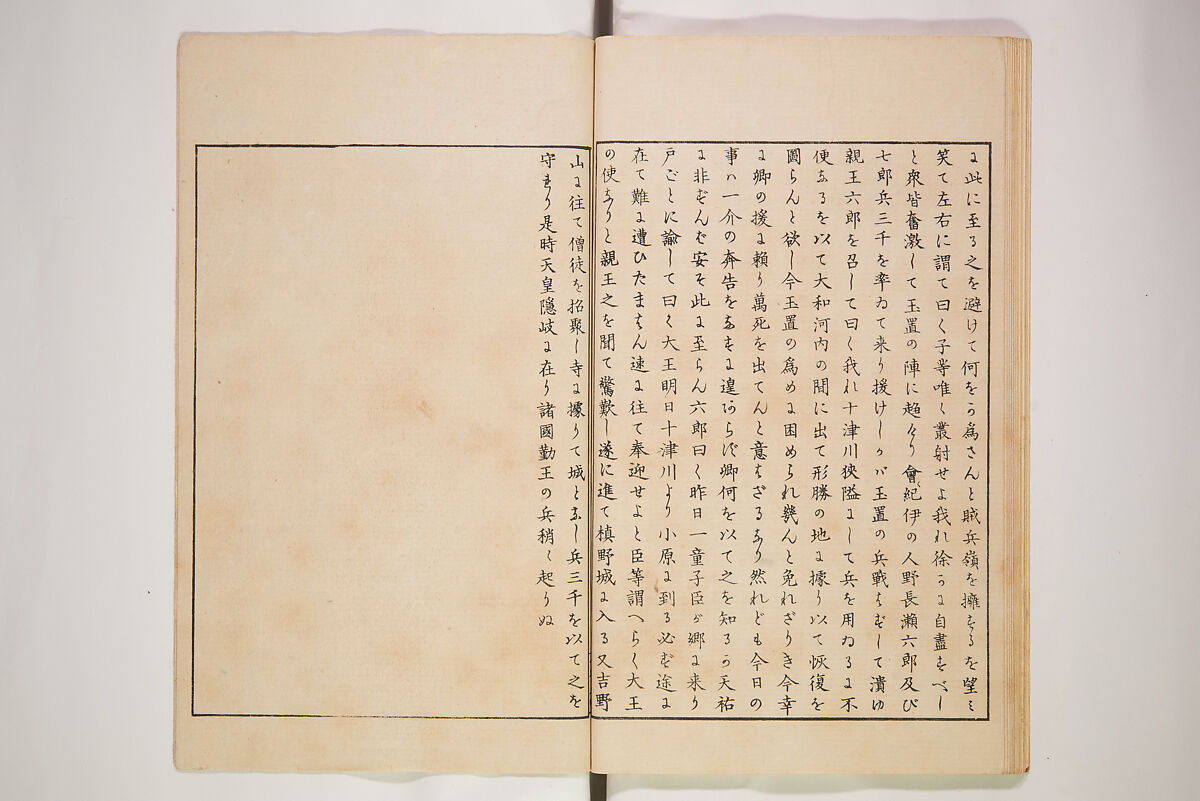 に此に至る之を避けて何をか爲さんと賊兵嶺を擁するを望ミ
笑て左右に謂て曰く子等唯く叢射せよ我れ徐かに自盡すべし
と衆皆奮激して玉置の陣に趍けり會〻紀伊の人野長瀬六郎及び
七郎兵三千を率ゐて来り援けしかバ玉置の兵戰はずして潰ゆ
親王六郎を召して曰く我れ十津川狹隘にして兵を用ゐるに不
便なるを以て大和河内の間に出て形勝の地に據り以て恢復を
圖らんと欲し今玉置の爲めに困められ幾んと免れざりき今幸
に卿の援に賴り萬死を出てんと意はざるなり然れども今日の
事ハ一介の奔告をなすに遑あらず卿何を以て之を知るか天祐
に非ずんば安そ此に至らん六郎曰く昨日一童子臣が鄕に来り
戸ごとに諭して曰く大王明日十津川より小原に到る必ず途に
在て難に遭ひたまはん速に往て奉迎せよと臣等謂へらく大王
の使なりと親王之を聞て驚歎し遂に進て槙野城に入る又吉野
山に往て僧徒を招聚し寺に據りて城となし兵三千を以て之を
守すり是時天皇隱岐に在り諸國勤王の兵稍〻起りぬ